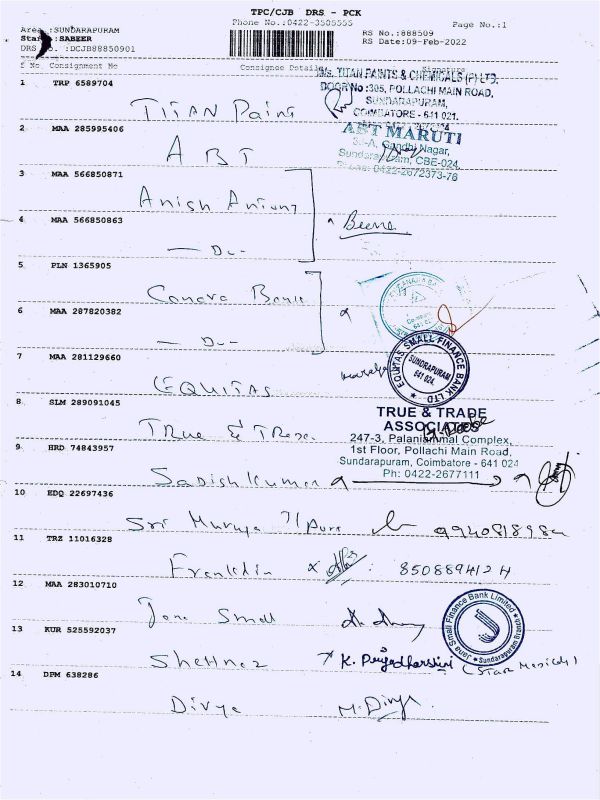 TPC/CJB DRS - PCK
Phone No.:0422-3505555
Page No.:1
Area :SUNDARAPURAM
:SABEER
DRS No. :DCJB88850901
RS No.:888509
RS Date:09-Feb-2022
No Consignment No
Consignee Details
Signature
1 TRP 6589704
Titan Paint
M/s. TITAN PAINTS & CHEMICALS (P) LTD.
DOOR No :305, POLLACHI MAIN ROAD,
SUNDARAPURAM,
COIMBATORE - 641 021.
2 MAA 285995406
ABT
ABT MARUTI
Gandhi Nagar,
CBE-024.
0422-2672373-76
3 MAA 566850871
Anish Antony
4 MAA 566850863
— Do —
5 PLN 1365905
Canara Bank
6 MAA 287820382
— Do —
7 MAA 281129660
EQUITAS
EQUITAS SMALL FINANCE BANK LTD
SUNDRAPURAM,
641 024.
8 SLM 289091045
True & Trade
TRUE & TRADE
ASSOCIATES
247-3, Palaniammal Complex,
1st Floor, Pollachi Main Road,
Sundarapuram, Coimbatore - 641 024
Ph: 0422-2677111
9 HRD 74843957
Sadish Kumar
10 EDQ 22697436
Sri Muruga
11 TRZ 11016328
Franklin
12 MAA 283010710
Jana Small
Jana Small Finance Bank Limited
Sundarapuram Branch
13 KUR 525592037
Shehnaz
K. Priyadharshini
14 DPM 638286
Divya
M. Divya